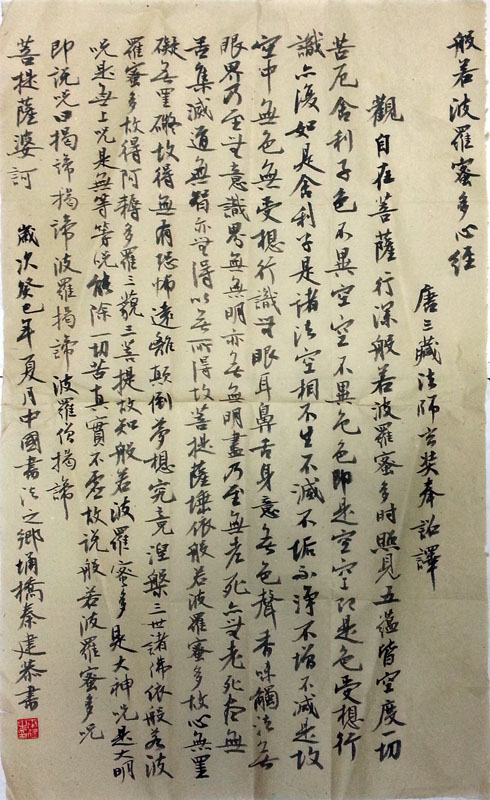 般若波羅蜜多心經
唐三藏法師玄奘奉詔譯
觀自在菩薩行深般若波羅蜜多時照見五蘊皆空度一切
苦厄舍利子色不異空空不異色色即是空空即是色受想行
識亦復如是舍利子是諸法空相不生不滅不垢不淨不增不減是故
空中無色無受想行識無眼耳鼻舌身意無色聲香味觸法無
眼界乃至無意識界無無明亦無無明盡乃至無老死亦無老死盡無
苦集滅道無智亦無得以無所得故菩提薩埵依般若波羅蜜多故心無罣
礙無罣礙故得無有恐怖遠離顛倒夢想究竟涅槃三世諸佛依般若波
羅蜜多故得阿耨多羅三藐三菩提故知般若波羅蜜多是大神咒是大明
咒是無上咒是無等等咒能除切苦真實不虛故說般若波羅蜜多咒
即說咒曰揭諦揭諦波羅揭諦波羅僧揭諦
菩提薩婆訶 歲次癸巳年夏月中國書法之鄉埇橋秦建恭書